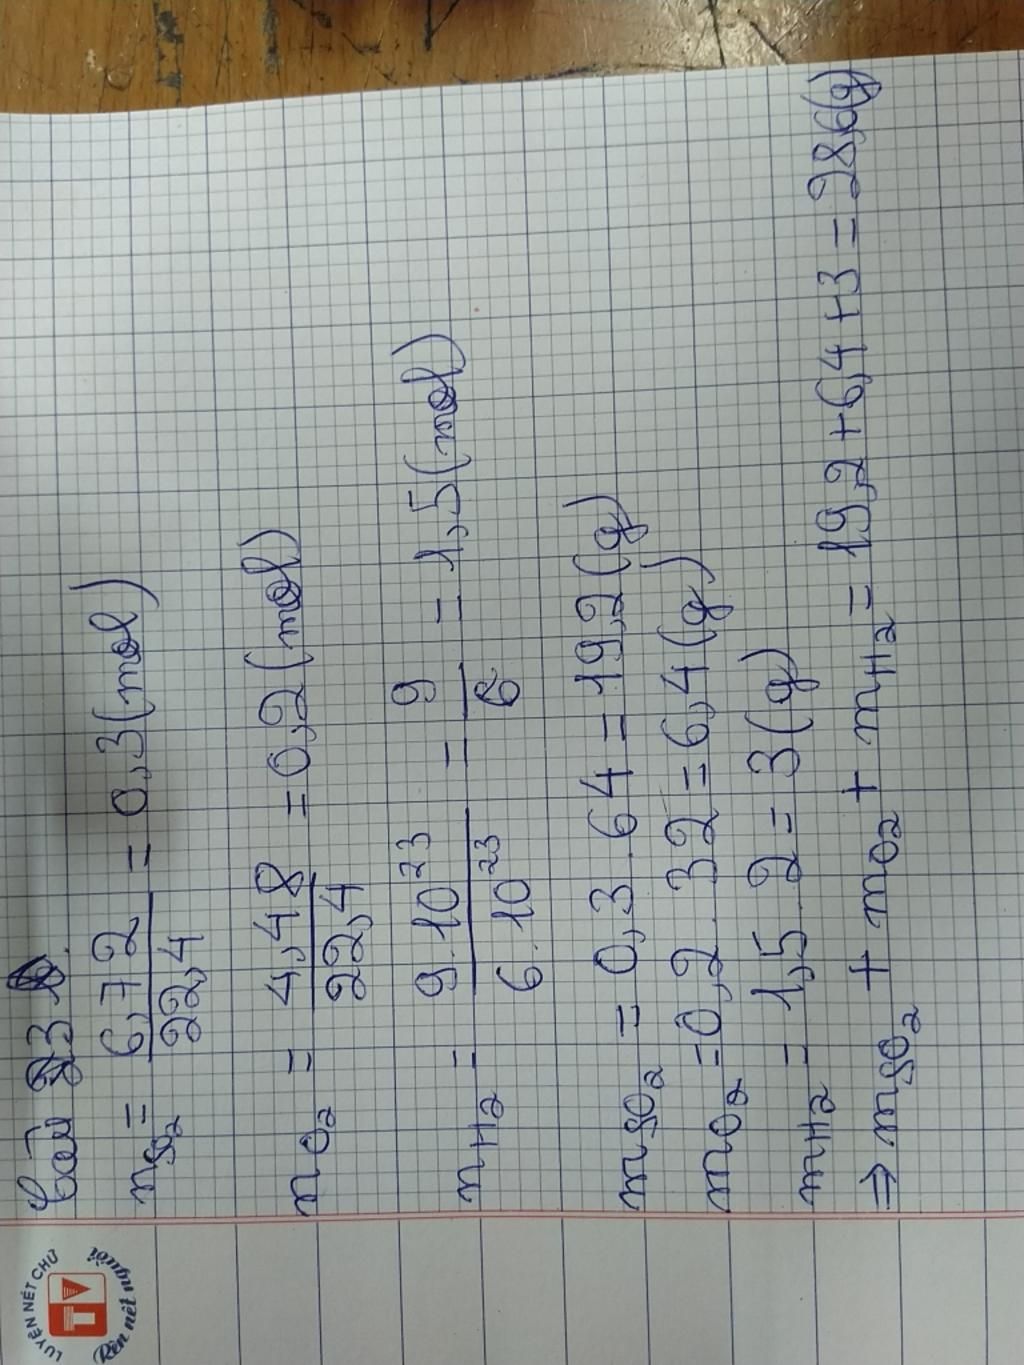 LUYỆN NÉT CHỮ
TV
Rèn nết người
bài 23
nSO₂ = 6,72/22,4 = 0,3 (mol)
nO₂ = 4,48/22,4 = 0,2 (mol)
nH₂ = 9.10²³/6.10²³ = 9/6 = 1,5 (mol)
mSO₂ = 0,3 . 64 = 19,2 (g)
mO₂ = 0,2 . 32 = 6,4 (g)
mH₂ = 1,5 . 2 = 3 (g)
⇒ mSO₂ + mO₂ + mH₂ = 19,2 + 6,4 + 3 = 28,6 (g)